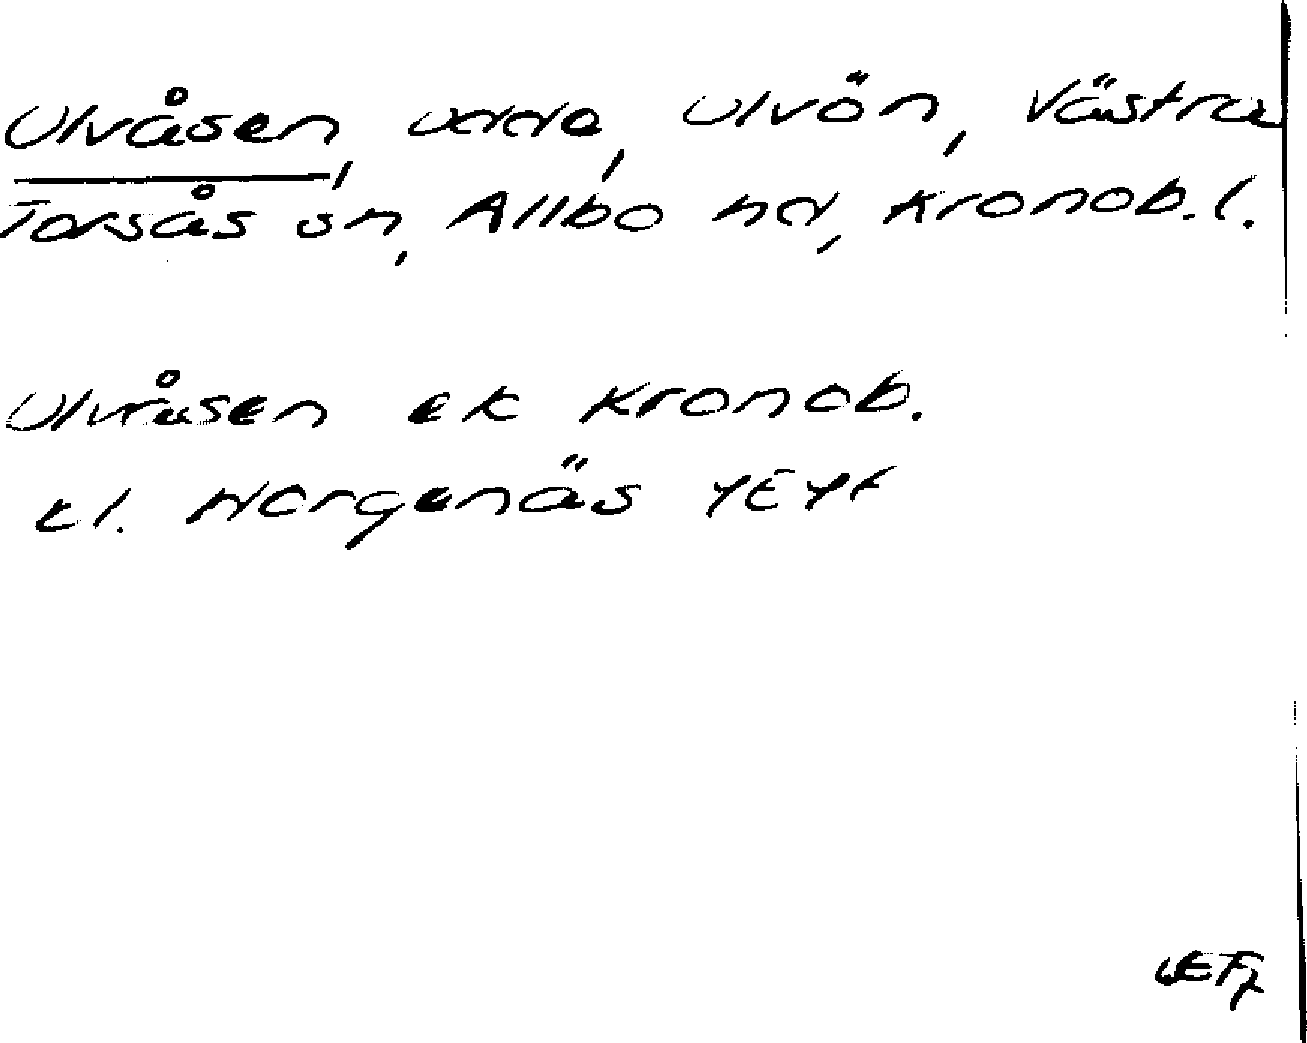 Ulvåsen, udde, Ulvön, Västra
Torsås sn, Allbo hd, Kronob. l.
Ulvåsen ek Kronob.
kl. Horgenäs